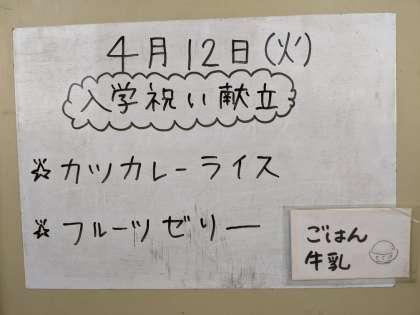 4月12日(火)
入学祝い献立
☆カツカレーライス
☆フルーツゼリー
ごはん
牛乳